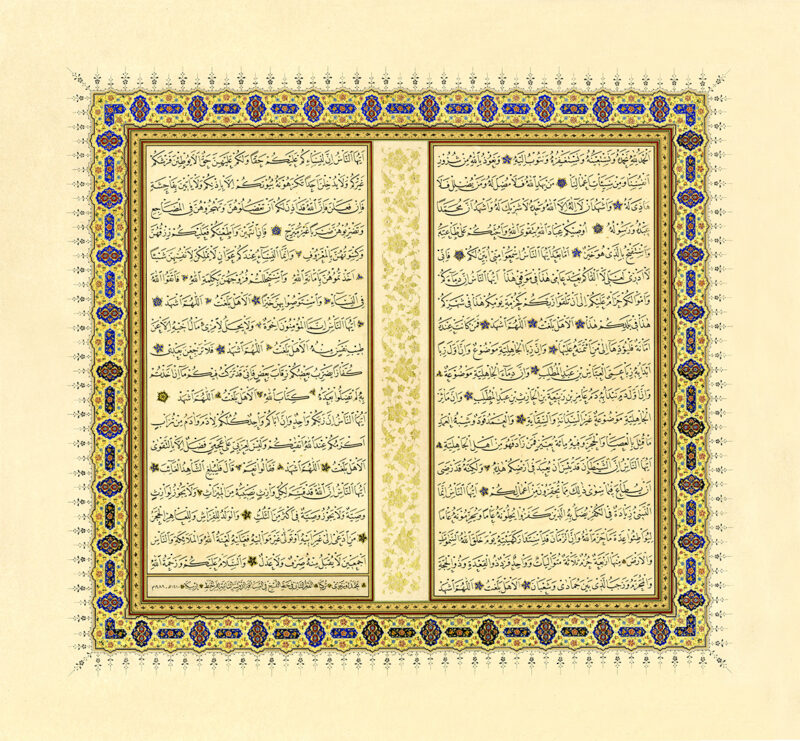 الحمد لله نحمده ونستعينه ونستغفره ونتوب إليه ونعوذ بالله من شرور
أنفسنا ومن سيئات أعمالنا من يهد الله فلا مضل له ومن يضلل فلا
هادي له وأشهد أن لا إله إلا الله وحده لا شريك له وأشهد أن محمدا
عبده ورسوله أوصيكم عباد الله بتقوى الله وأحثكم على طاعته
وأستفتح بالذي هو خير أما بعد أيها الناس اسمعوا مني أبين لكم فإني
لا أدري لعلي لا ألقاكم بعد عامي هذا في موقفي هذا أيها الناس إن دماءكم
وأموالكم حرام عليكم إلى أن تلقوا ربكم كحرمة يومكم هذا في شهركم
هذا في بلدكم هذا ألا هل بلغت اللهم اشهد فمن كانت عنده
أمانة فليؤدها إلى من ائتمنه عليها وإن ربا الجاهلية موضوع وإن أول ربا
أبدأ به ربا عمي العباس بن عبد المطلب وإن دماء الجاهلية موضوعة
وإن أول دم نبدأ به دم عامر بن ربيعة بن الحارث بن عبد المطلب وإن مآثر
الجاهلية موضوعة غير السدانة والسقاية والعمد قود وشبه العمد
ما قتل بالعصا والحجر وفيه مائة بعير فمن زاد فهو من أهل الجاهلية
أيها الناس إن الشيطان قد يئس أن يعبد في أرضكم هذه ولكنه قد رضي
أن يطاع فيما سوى ذلك مما تحقرون من أعمالكم أيها الناس إنما
النسيء زيادة في الكفر يضل به الذين كفروا يحلونه عاما ويحرمونه عاما
ليواطئوا عدة ما حرم الله وإن الزمان قد استدار كهيئته يوم خلق الله السموات
والأرض منها أربعة حرم ثلاثة متواليات وواحد فرد ذو القعدة وذو الحجة
والمحرم ورجب الذي بين جمادى وشعبان ألا هل بلغت اللهم اشهد
أيها الناس إن لنسائكم عليكم حقا ولكم عليهن حق ألا يوطئن فرشكم
غيركم ولا يدخلن أحدا تكرهونه بيوتكم إلا بإذنكم ولا يأتين بفاحشة
فإن فعلن فإن الله قد أذن لكم أن تعضلوهن وتهجروهن في المضاجع
وتضربوهن ضربا غير مبرح فإن انتهين وأطعنكم فعليكم رزقهن
وكسوتهن بالمعروف وإنما النساء عندكم عوان لا يملكن لأنفسهن شيئا
أخذتموهن بأمانة الله واستحللتم فروجهن بكلمة الله فاتقوا الله
في النساء واستوصوا بهن خيرا ألا هل بلغت اللهم اشهد
أيها الناس إنما المؤمنون إخوة ولا يحل لامرئ مال أخيه إلا عن
طيب نفس منه ألا هل بلغت اللهم اشهد فلا ترجعن بعدي
كفارا يضرب بعضكم رقاب بعض فإني قد تركت فيكم ما إن أخذتم
به لم تضلوا بعده كتاب الله ألا هل بلغت اللهم اشهد
أيها الناس إن ربكم واحد وإن أباكم واحد كلكم لآدم وآدم من تراب
أكرمكم عند الله أتقاكم وليس لعربي على عجمي فضل إلا بالتقوى
ألا هل بلغت اللهم اشهد قالوا نعم قال فليبلغ الشاهد الغائب
أيها الناس إن الله قد قسم لكل وارث نصيبه من الميراث ولا يجوز لوارث
وصية ولا يجوز وصية في أكثر من الثلث والولد للفراش وللعاهر الحجر
من ادعى إلى غير أبيه أو تولى غير مواليه فعليه لعنة الله والملائكة والناس
أجمعين لا يقبل منه صرف ولا عدل والسلام عليكم ورحمة الله